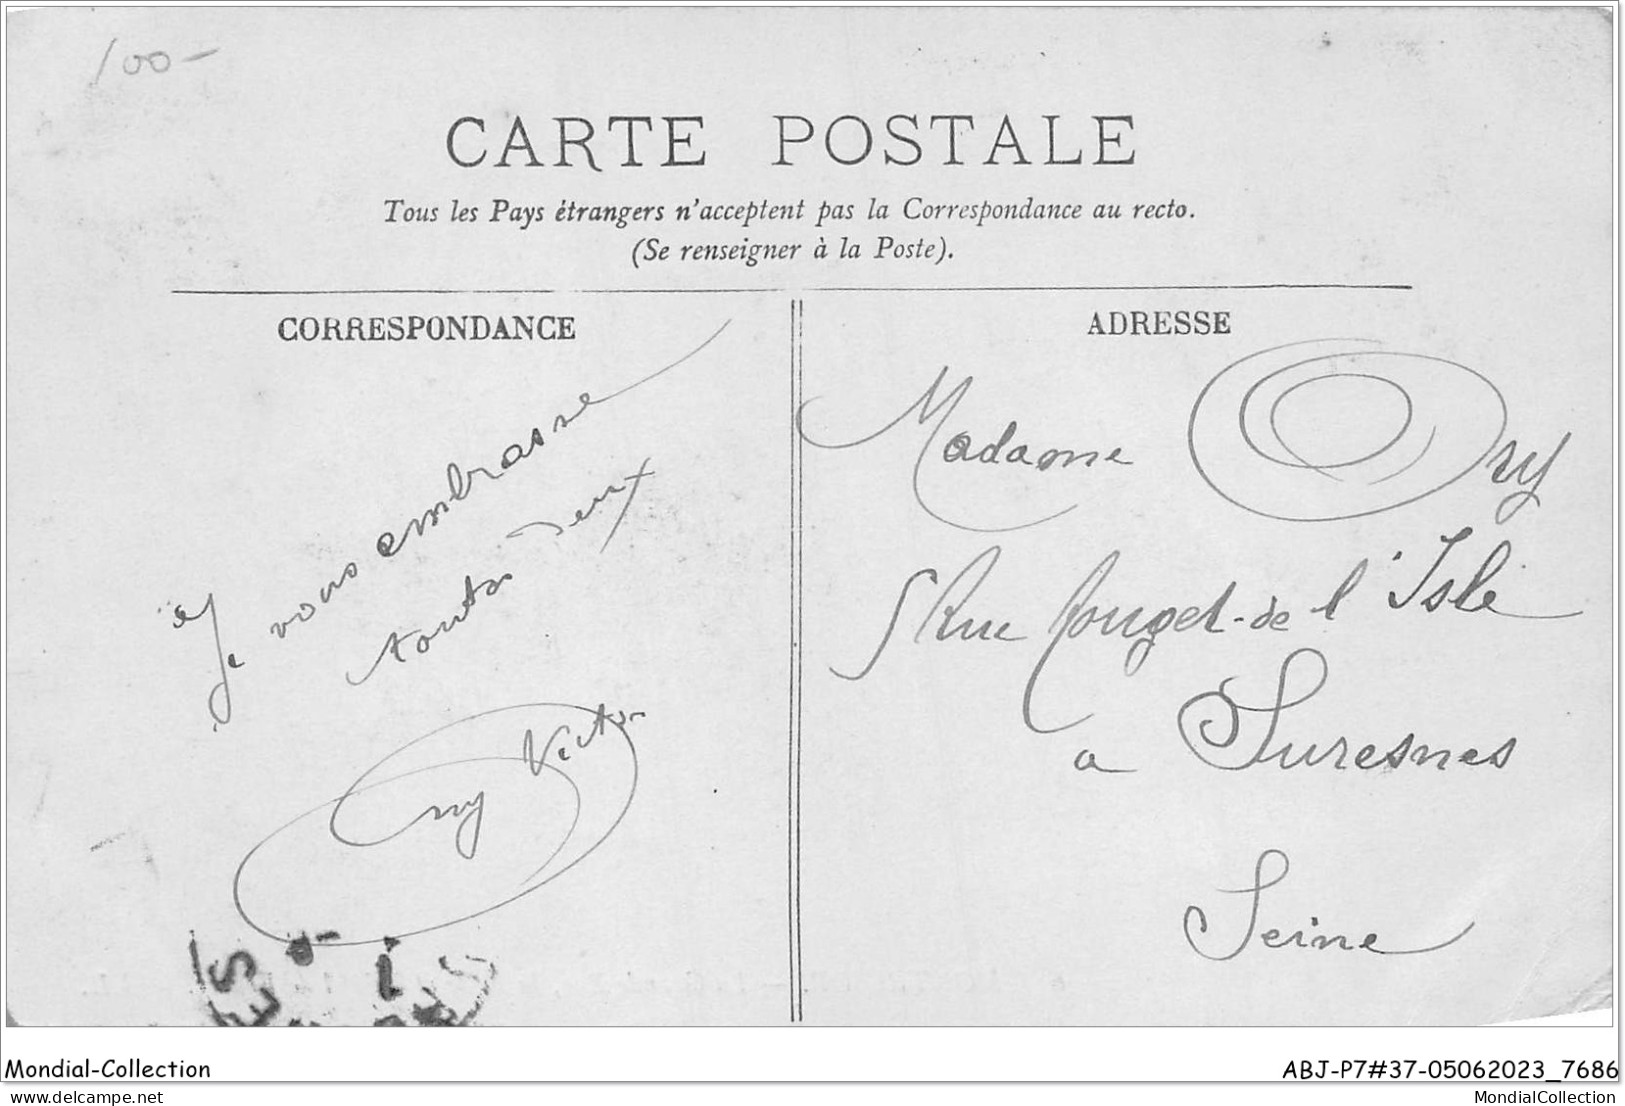 100-
CARTE POSTALE
Tous les Pays étrangers n'acceptent pas la Correspondance au recto.
(Se renseigner à la Poste).
CORRESPONDANCE
Je vous embrasse
toutes deux
Victor
Ory
ADRESSE
Madame Ory
5 Rue Rouget-de l'Isle
a Suresnes
Seine
Mondial-Collection
ABJ-P7#37-05062023_7686
delcampe.net
MondialCollection